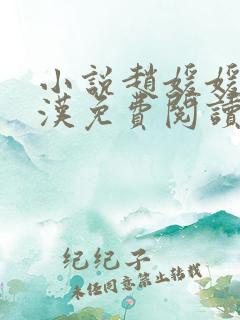 小說趙媛媛
漢免費閱讀
纪纪子
未经同意禁止转载